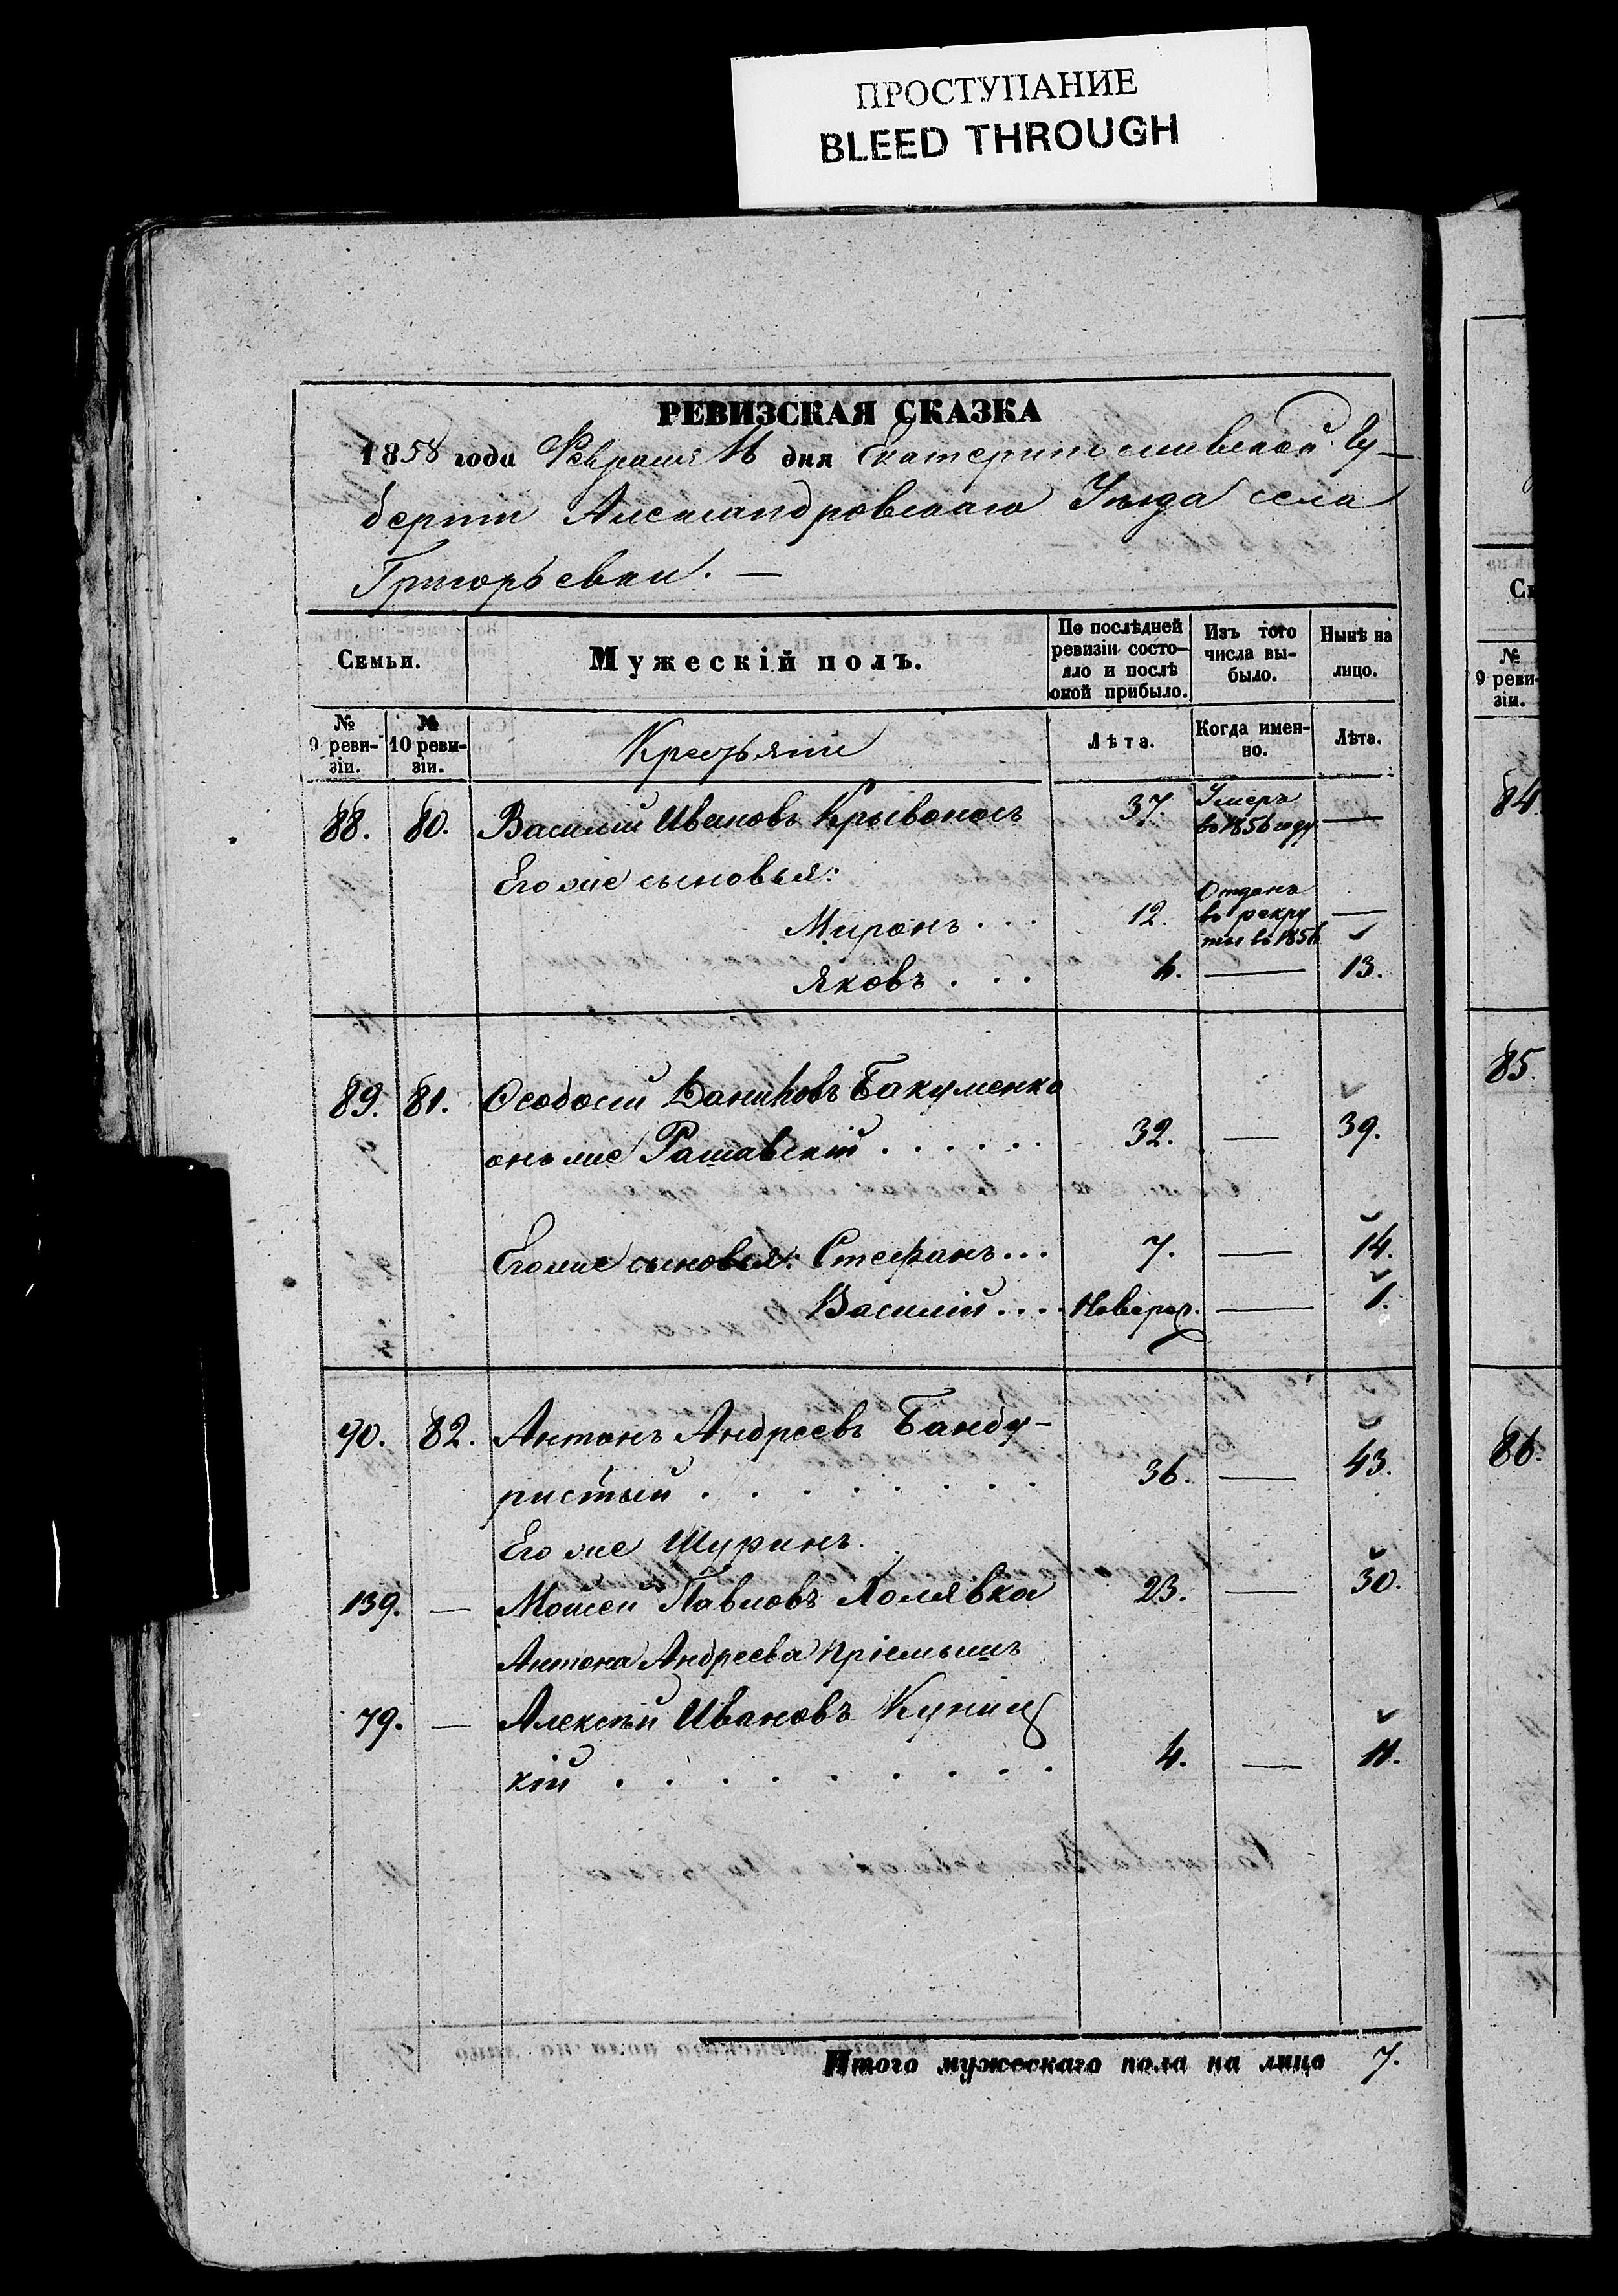 ПРОСТУПАНИЕ
BLEED THROUGH
РЕВИЗСКАЯ СКАЗКА
1858 года Февраля 16 дня Екатеринославской Гу-
берніи Александровскаго Уѣзда села
Григорьевки. —
Семьи. Мужескій полъ. По послѣдней ревизіи состо-яло и послѣ оной прибыло. Изъ того числа вы-было. Нынѣ на лицо.
№ 9 реви-зіи. № 10 реви-зіи. Крестьяне Лѣта. Когда имен-но. Лѣта.
88. 80. Василій Ивановъ Кривоносъ 37. Умеръ въ 1856 году —
Его же сыновья:
Миронъ . . . 12. Отданъ въ рекру ты въ 1856 —
Яковъ . . . 4. — 13.
89. 81. Ѳеодосій Даниловъ Бакуменко
онъ же Рашавскій . . . . . . 32. — 39.
Его же сыновья: Стефанъ... 7. — 14.
Василій.... Новорож. — 1.
90. 82. Антонъ Андреевъ Банду-
ристый . . . . . . . . 36. — 43.
Его же Шуринъ.
139. — Мойсей Павловъ Холявка 23. — 30.
Антона Андреева пріемышъ
79. — Алексѣй Ивановъ Куниц
кій . . . . . . . . . 4. — 11.
Итого мужескаго пола на лицо 7.
№
9 реви-
зіи.
84
85.
86.